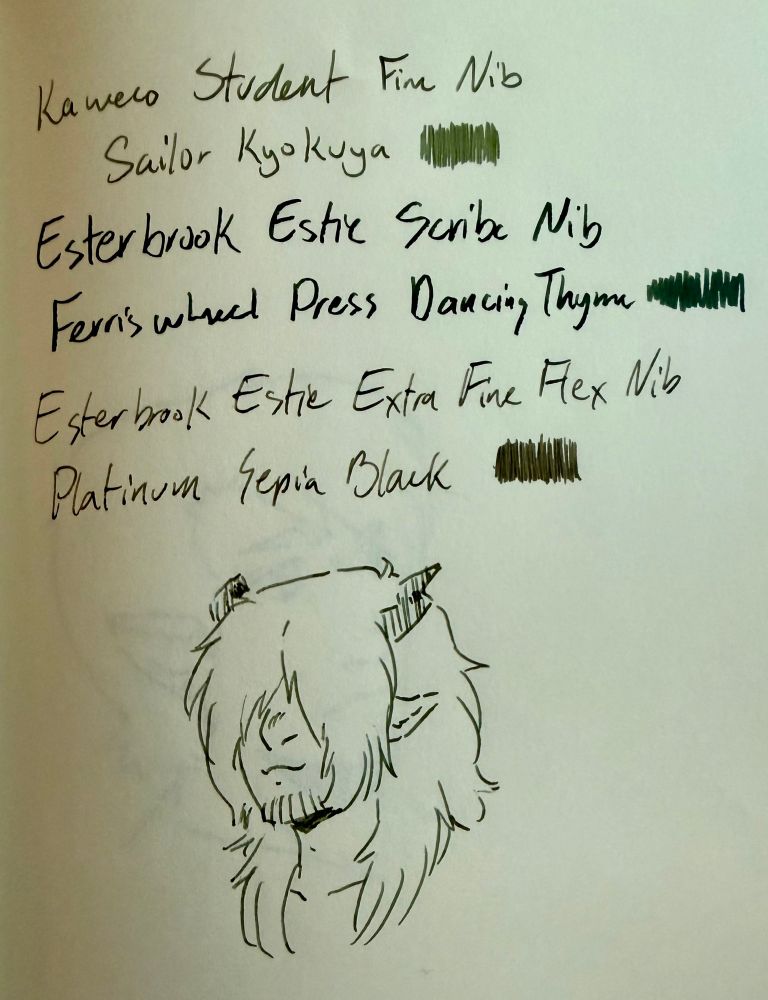 Kaweco Student Fine Nib
Sailor Kyokuya
Esterbrook Estie Scribe Nib
Ferriswheel Press Dancing Thyme
Esterbrook Estie Extra Fine Flex Nib
Platinum Sepia Black